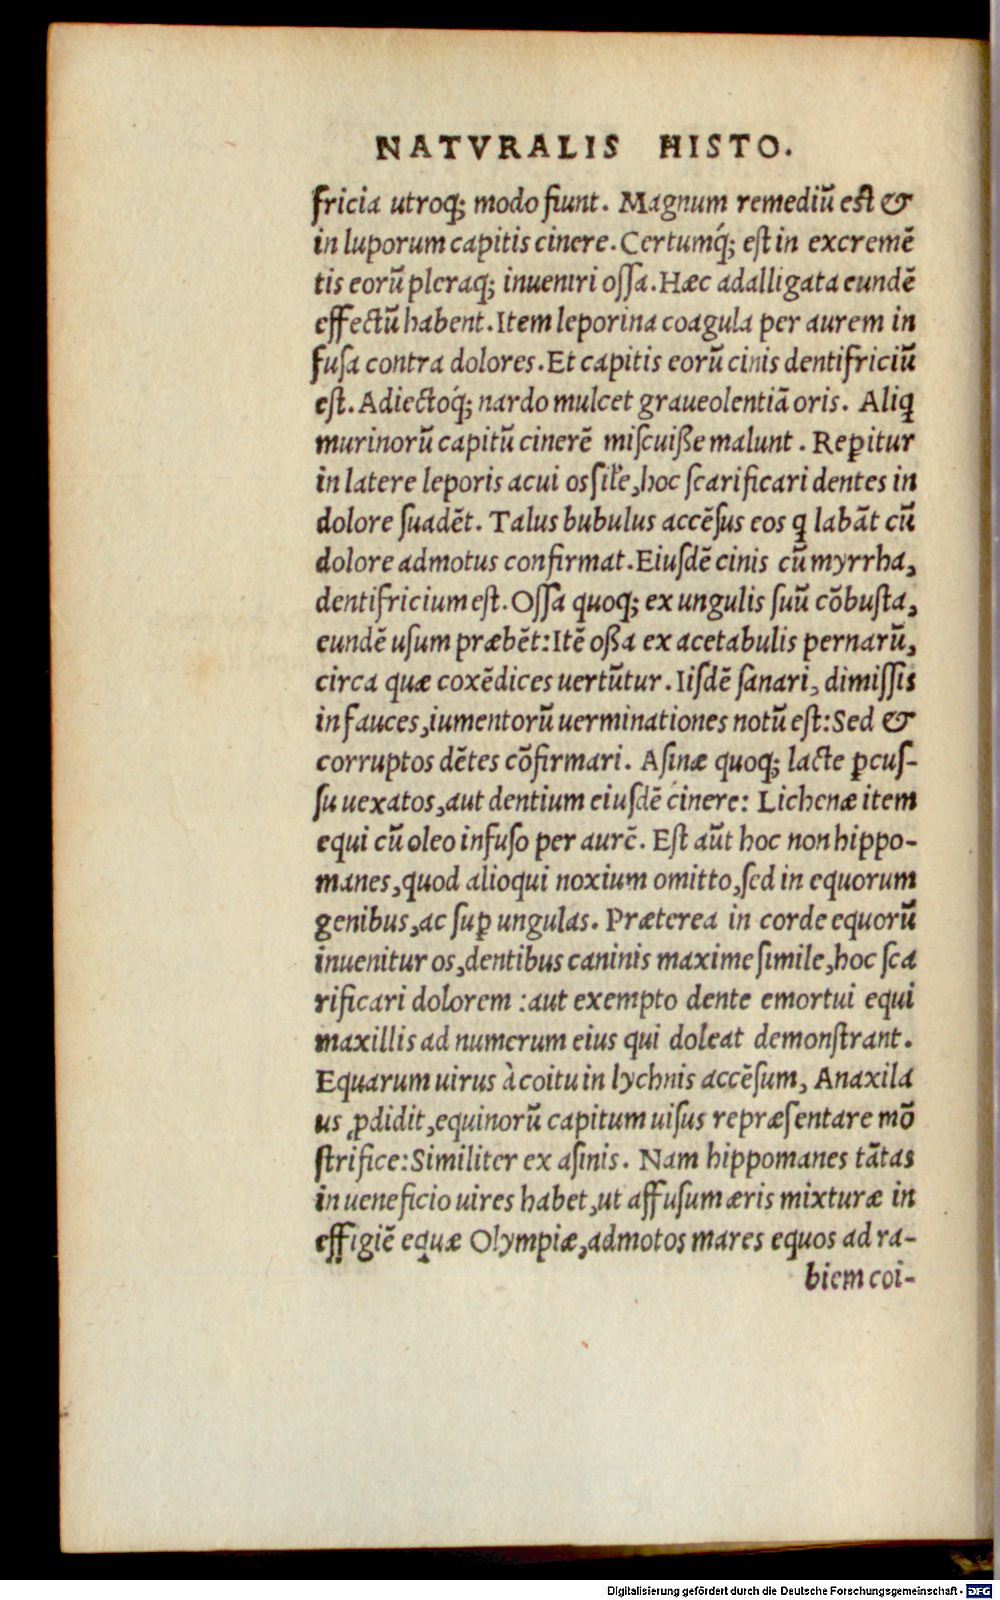 NATVRALIS HISTO.
fricia utroq; modo fiunt. Magnum remediū est &
in luporum capitis cinere. Certumq́; est in excremē
tis eorū pleraq; inueniri ossa. Hæc adalligata eundē
effectū habent. Item leporina coagula per aurem in
fusa contra dolores. Et capitis eorū cinis dentifriciū
est. Adiectoq́; nardo mulcet graueolentiā oris. Aliq̨
murinorū capitū cinerē miscuiße malunt. Reꝑitur
in latere leporis acui os sil'e, hoc scarificari dentes in
dolore suadēt. Talus bubulus accēsus eos q̨ labāt cū
dolore admotus confirmat. Eiusdē cinis cū myrrha,
dentifricium est. Ossa quoq; ex ungulis suū cōbusta,
eundē usum præbēt: Itē oßa ex acetabulis pernarū,
circa quæ coxēdices uertūtur. Iisdē sanari, dimissis
in fauces, iumentorū uerminationes notū est: Sed &
corruptos dētes cōfirmari. Asinæ quoq; lacte ꝑcus-
su uexatos, aut dentium eiusdē cinere: Lichenæ item
equi cū oleo infuso per aurē. Est aūt hoc non hippo-
manes, quod alioqui noxium omitto, sed in equorum
genibus, ac suꝑ ungulas. Præterea in corde equorū
inuenitur os, dentibus caninis maxime simile, hoc sca
rificari dolorem : aut exempto dente emortui equi
maxillis ad numerum eius qui doleat demonstrant.
Equarum uirus à coitu in lychnis accēsum, Anaxila
us ꝓdidit, equinorū capitum uisus repræsentare mō
strifice: Similiter ex asinis. Nam hippomanes tātas
in ueneficio uires habet, ut affusum æris mixturæ in
effigiē equæ Olympiæ, admotos mares equos ad ra-
biem coi-
Digitalisierung gefördert durch die Deutsche Forschungsgemeinschaft - DFG